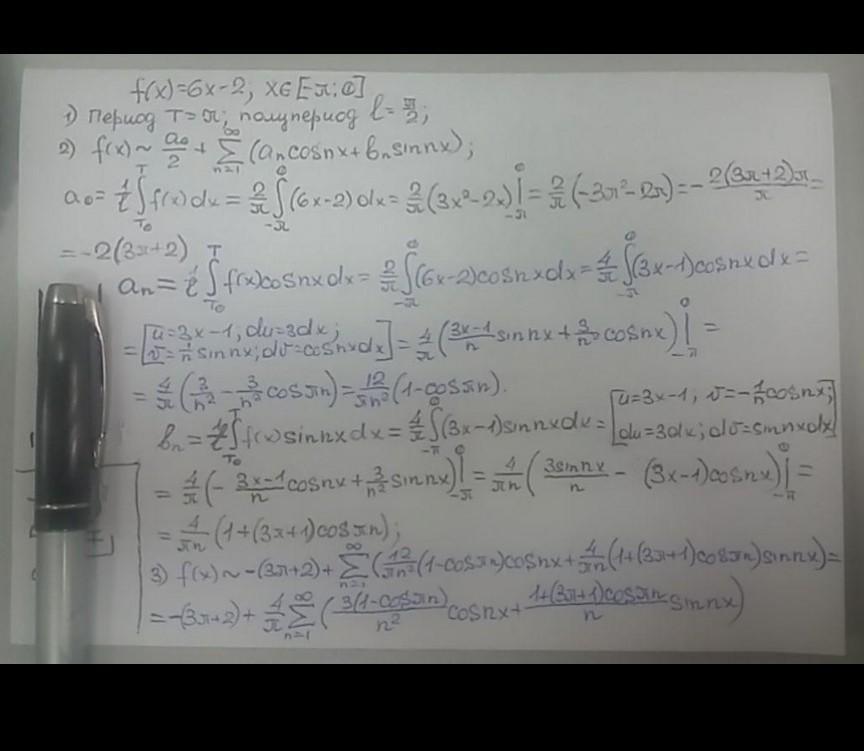 f(x)=6x-2, x∈[-π;0]
1) Период T=π; полупериод l=π/2;
2) f(x)~a₀/2+∑_{n=1}^{∞}(aₙcosnx+bₙsinnx);
a₀=1/l∫_{T₀}^{T}f(x)dx=2/π∫_{-π}^{0}(6x-2)dx=2/π(3x²-2x)|_{-π}^{0}=2/π(-3π²-2π)=-2(3π+2)π/π=
=-2(3π+2)
aₙ=1/l∫_{T₀}^{T}f(x)cosnxdx=2/π∫_{-π}^{0}(6x-2)cosnxdx=4/π∫_{-π}^{0}(3x-1)cosnxdx=
=[u=3x-1; du=3dx; v=1/n sinnx; dv=cosnxdx]=4/π((3x-1)/n sinnx+3/n² cosnx)|_{-π}^{0}=
=4/π(3/n²-3/n² cosπn)=12/πn²(1-cosπn).
bₙ=1/l∫_{T₀}^{T}f(x)sinnxdx=4/π∫_{-π}^{0}(3x-1)sinnxdx=[u=3x-1; v=-1/n cosnx; du=3dx; dv=sinnxdx]
=4/π(-(3x-1)/n cosnx+3/n² sinnx)|_{-π}^{0}=4/πn(3sinnx/n-(3x-1)cosnx)|_{-π}^{0}=
=4/πn(1+(3π+1)cosπn);
3) f(x)~-(3π+2)+∑_{n=1}^{∞}(12/πn²(1-cosπn)cosnx+4/πn(1+(3π+1)cosπn)sinnx)=
=-(3π+2)+4/π∑_{n=1}^{∞}(3(1-cosπn)/n² cosnx+(1+(3π+1)cosπn)/n sinnx)